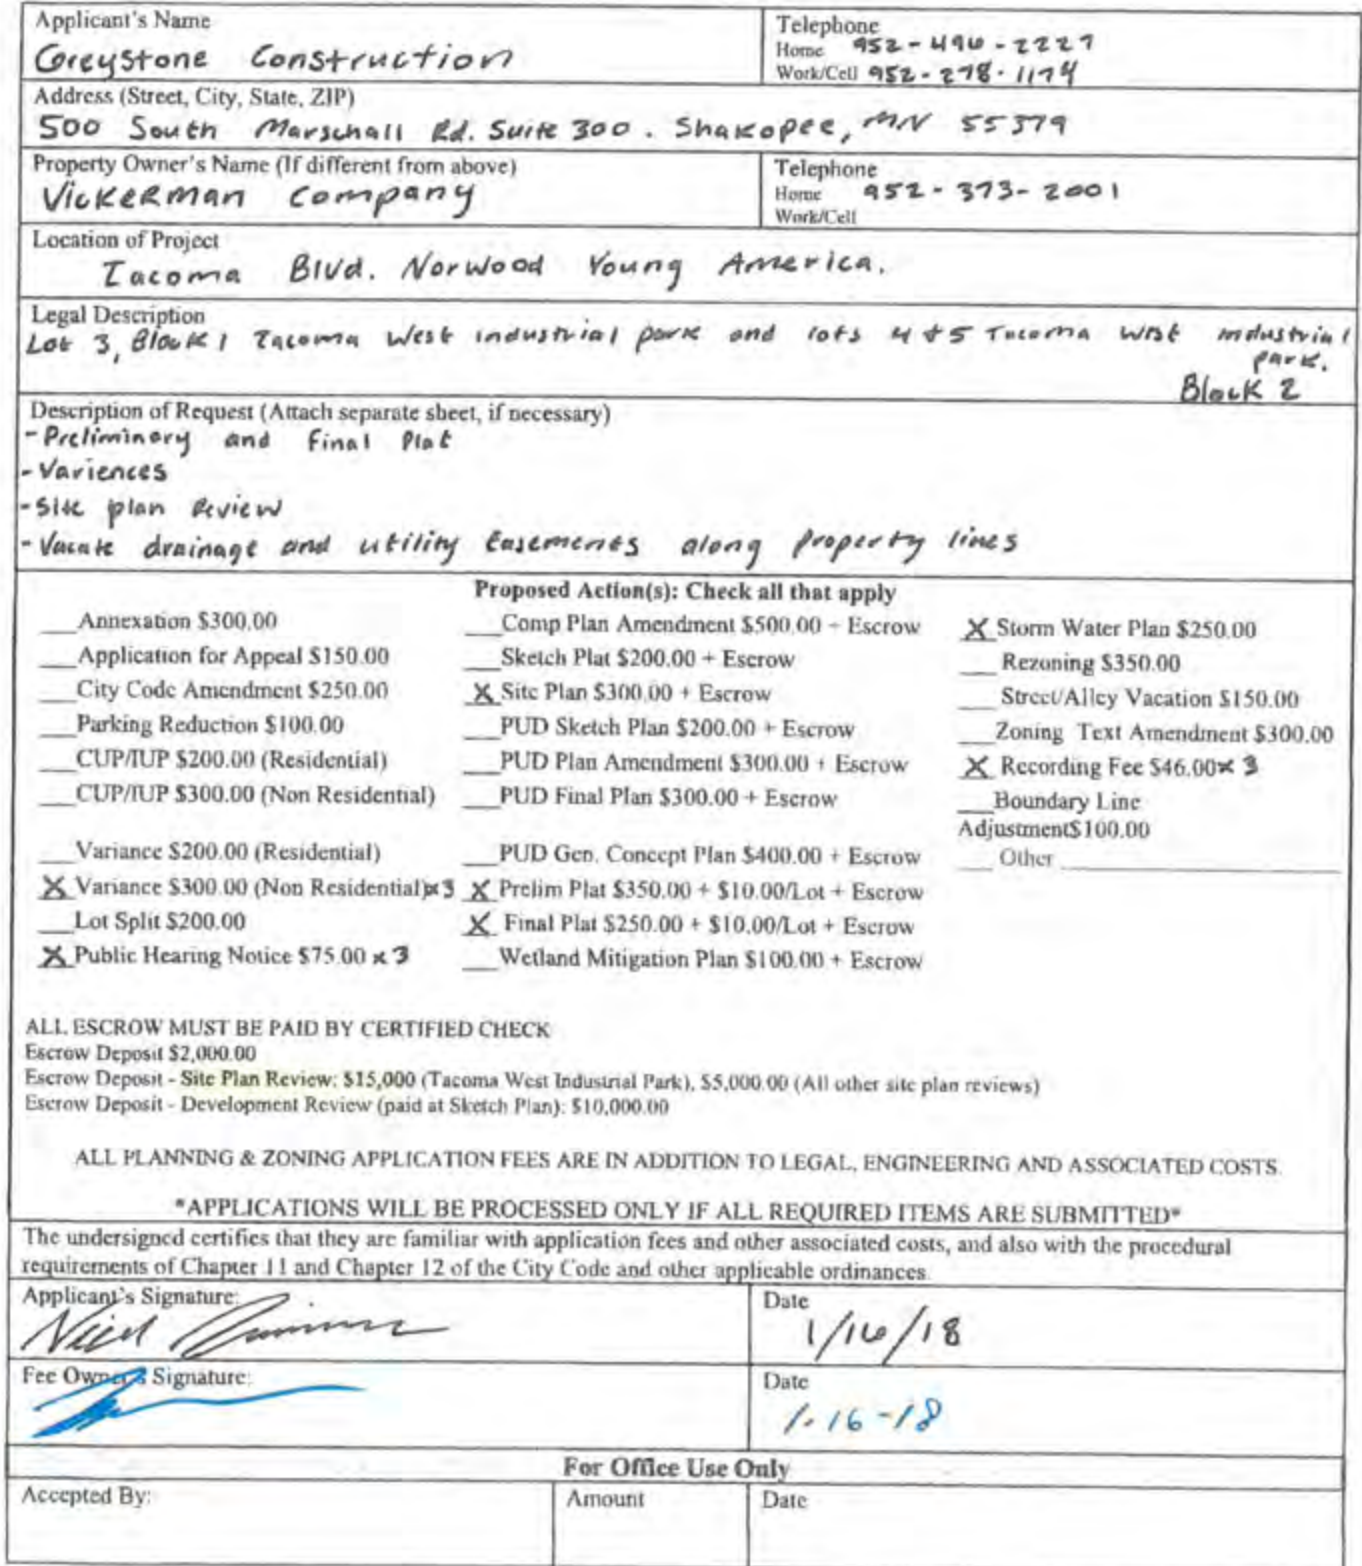 Applicant's Name
Greystone Construction
Telephone
Home 952-496-2227
Work/Cell 952-278-1174
Address (Street, City, State, ZIP)
500 South Marschall Rd. Suite 300. Shakopee, MN 55379
Property Owner's Name (If different from above)
Vickerman Company
Telephone
Home 952-373-2001
Work/Cell
Location of Project
Tacoma Blvd. Norwood Young America.
Legal Description
Lot 3, Block 1 Tacoma West industrial park and lots 4 + 5 Tacoma West industrial
park.
Block 2
Description of Request (Attach separate sheet, if necessary)
- Preliminary and Final Plat
- Variences
- Site plan Review
- Vacate drainage and utility Easements along property lines
Proposed Action(s): Check all that apply
___Annexation $300.00
___Application for Appeal $150.00
___City Code Amendment $250.00
___Parking Reduction $100.00
___CUP/IUP $200.00 (Residential)
___CUP/IUP $300.00 (Non Residential)
___Variance $200.00 (Residential)
X Variance $300.00 (Non Residential) x 3
___Lot Split $200.00
X Public Hearing Notice $75.00 x 3
___Comp Plan Amendment $500.00 + Escrow
___Sketch Plat $200.00 + Escrow
X Site Plan $300.00 + Escrow
___PUD Sketch Plan $200.00 + Escrow
___PUD Plan Amendment $300.00 + Escrow
___PUD Final Plan $300.00 + Escrow
___PUD Gen. Concept Plan $400.00 + Escrow
X Prelim Plat $350.00 + $10.00/Lot + Escrow
X Final Plat $250.00 + $10.00/Lot + Escrow
___Wetland Mitigation Plan $100.00 + Escrow
X Storm Water Plan $250.00
___Rezoning $350.00
___Street/Alley Vacation $150.00
___Zoning Text Amendment $300.00
X Recording Fee $46.00 x 3
___Boundary Line
Adjustment$100.00
___Other ____________________
ALL ESCROW MUST BE PAID BY CERTIFIED CHECK
Escrow Deposit $2,000.00
Escrow Deposit - Site Plan Review: $15,000 (Tacoma West Industrial Park), $5,000.00 (All other site plan reviews)
Escrow Deposit - Development Review (paid at Sketch Plan): $10,000.00
ALL PLANNING & ZONING APPLICATION FEES ARE IN ADDITION TO LEGAL, ENGINEERING AND ASSOCIATED COSTS.
*APPLICATIONS WILL BE PROCESSED ONLY IF ALL REQUIRED ITEMS ARE SUBMITTED*
The undersigned certifies that they are familiar with application fees and other associated costs, and also with the procedural
requirements of Chapter 11 and Chapter 12 of the City Code and other applicable ordinances.
Applicant's Signature:
Date
1/16/18
Fee Owner's Signature:
Date
1-16-18
For Office Use Only
Accepted By:
Amount
Date